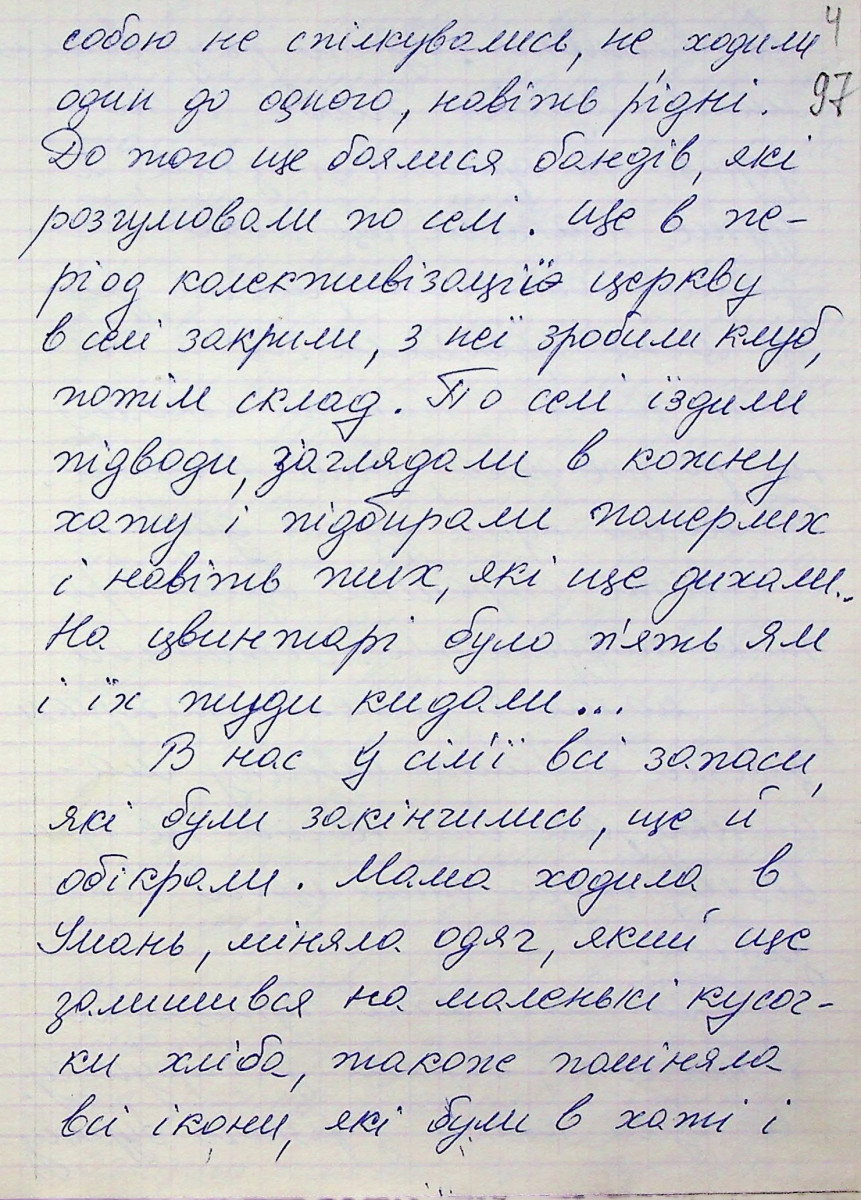 4
97
собою не спілкувались, не ходили
один до одного, навіть рідні.
До того ще боялися бандів, які
розгулювали по селі. Ще в пе-
ріод колективізації церкву
в селі закрили, з неї зробили клуб,
потім склад. По селі їздили
підводи, заглядали в кожну
хату і підбирали померлих
і навіть тих, які ще дихали..
На цвинтарі було п'ять ям
і їх туди кидали...
В нас у сім'ї всі запаси,
які були закінчились, ще й
обікрали. Мама ходила в
Умань, міняла одяг, який ще
залишився на маленькі кусоч-
ки хліба, також поміняла
всі ікони, які були в хаті і